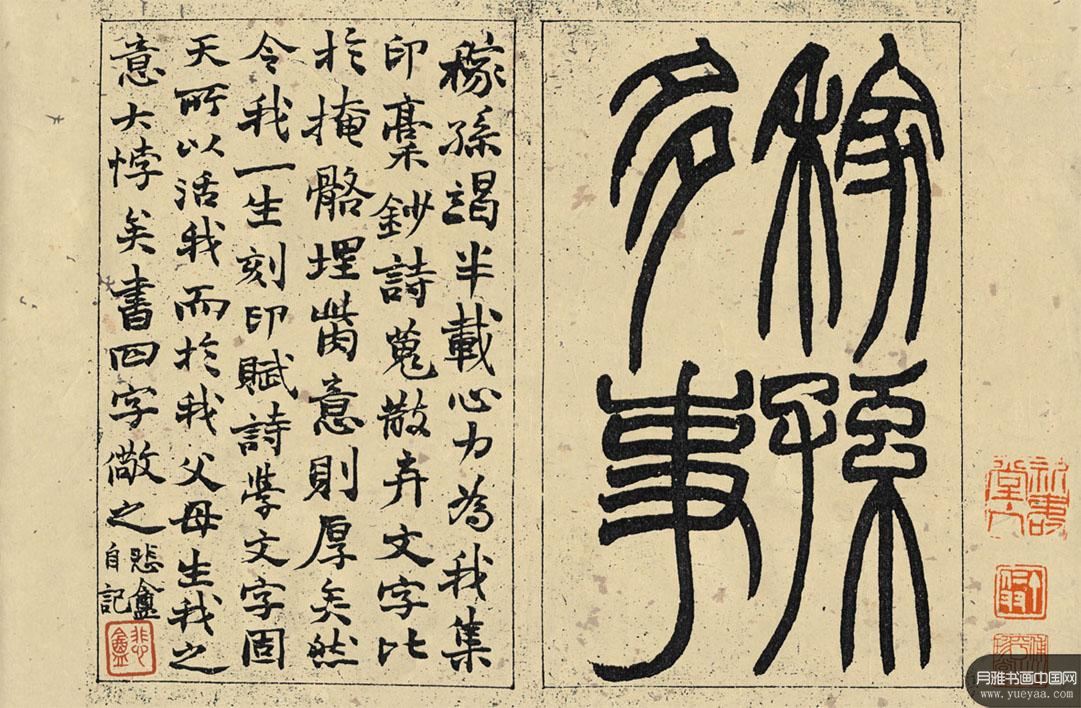 稼孫
多事
稼孫竭半載心力為我集
印稾鈔詩蒐散弃文字比
於掩骼埋胔意則厚矣然
令我一生刻印賦詩學文字固
天所以活我而於我父母生我之
意大悖矣書四字儆之
悲盦
自記
悲盦
月雅书画中国网
www.yueyaa.com